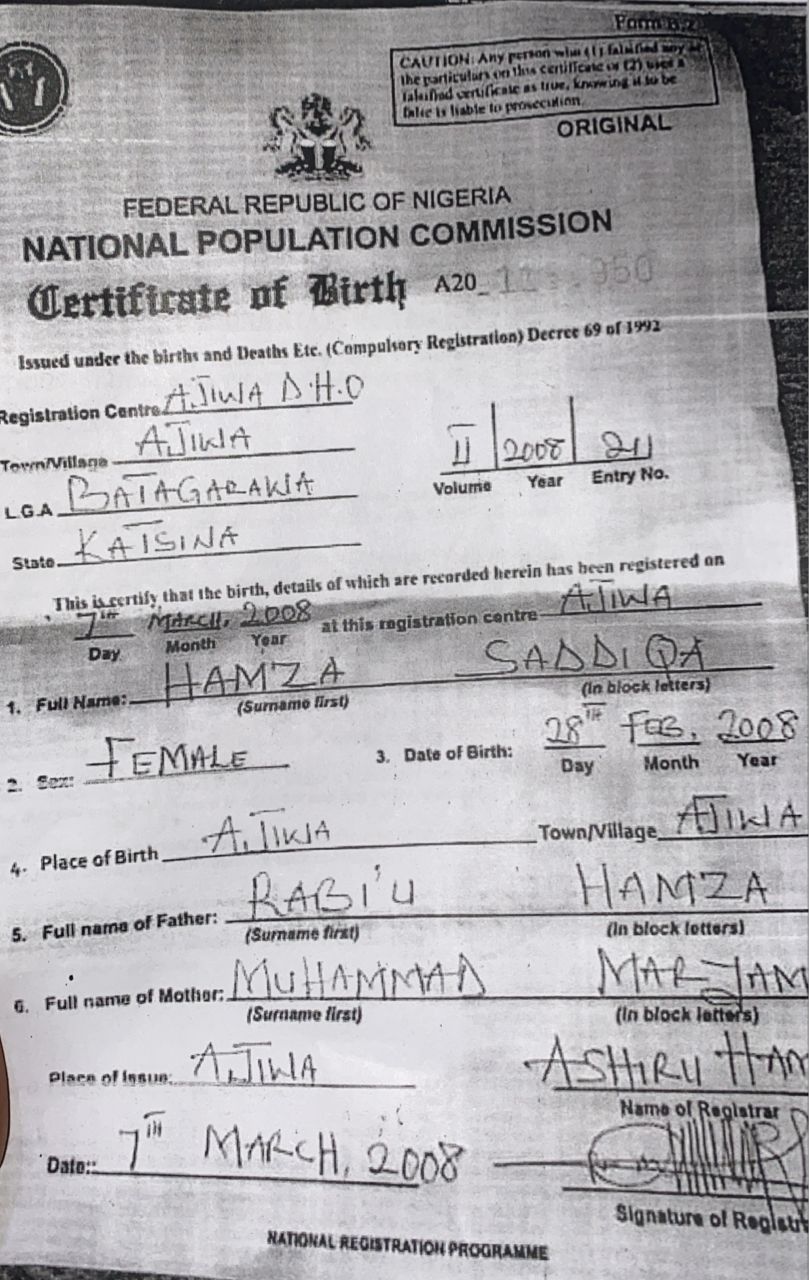 Form B.2
CAUTION: Any person who (1) falsified any of
the particulars on this certificate or (2) uses a
falsified certificate as true, knowing it to be
false is liable to prosecution.
ORIGINAL
FEDERAL REPUBLIC OF NIGERIA
NATIONAL POPULATION COMMISSION
Certificate of Birth A20_
Issued under the births and Deaths Etc. (Compulsory Registration) Decree 69 of 1992
Registration Centre AJIWA D.H.O
Town/Village AJIWA
L.G.A BATAGARAWA
State KATSINA
II 2008 211
Volume Year Entry No.
This is certify that the birth, details of which are recorded herein has been registered on
7TH MARCH, 2008 at this registration centre AJIWA
Day Month Year
1. Full Name: HAMZA SADDIQA
(Surname first) (In block letters)
2. Sex: FEMALE 3. Date of Birth: 28TH FEB. 2008
Day Month Year
4. Place of Birth AJIWA Town/Village AJIWA
5. Full name of Father: RABI'U HAMZA
(Surname first) (In block letters)
6. Full name of Mother: MUHAMMAD MARYAM
(Surname first) (In block letters)
Place of Issue: AJIWA ASHIRU HAM
Name of Registrar
Date:: 7TH MARCH, 2008
Signature of Registr
NATIONAL REGISTRATION PROGRAMME